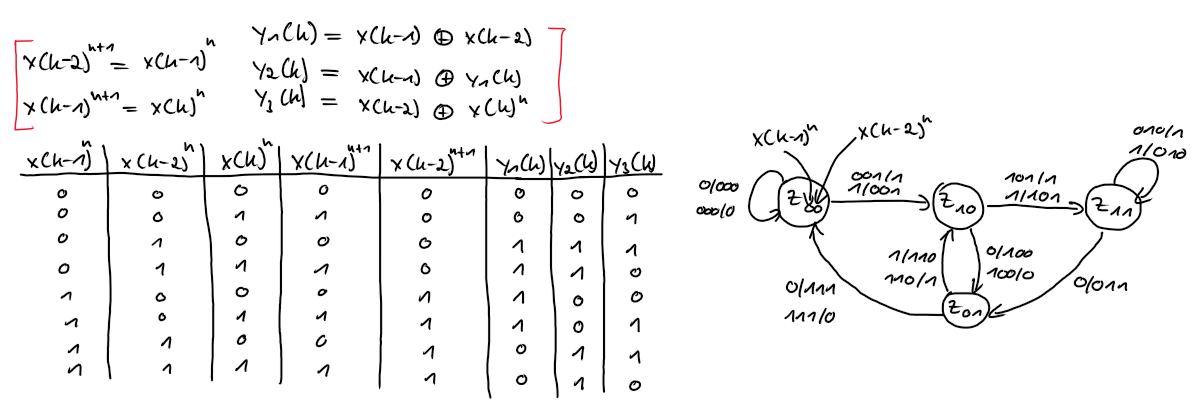 x(k-2)ⁿ⁺¹ = x(k-1)ⁿ
x(k-1)ⁿ⁺¹ = x(k)ⁿ
y₁(k) = x(k-1) ⊕ x(k-2)
y₂(k) = x(k-1) ⊕ y₁(k)
y₃(k) = x(k-2) ⊕ x(k)ⁿ
x(k-1)ⁿ x(k-2)ⁿ x(k)ⁿ x(k-1)ⁿ⁺¹ x(k-2)ⁿ⁺¹ y₁(k) y₂(k) y₃(k)
0 0 0 0 0 0 0 0
0 0 1 1 0 0 0 1
0 1 0 0 0 1 1 1
0 1 1 1 0 1 1 0
1 0 0 0 1 1 0 0
1 0 1 1 1 1 0 1
1 1 0 0 1 0 1 1
1 1 1 1 1 0 1 0
x(k-1)ⁿ
x(k-2)ⁿ
0/000
000/0
Z₀₀
001/1
1/001
Z₁₀
101/1
1/101
Z₁₁
010/1
1/010
1/110
110/1
0/100
100/0
0/011
0/111
111/0
Z₀₁